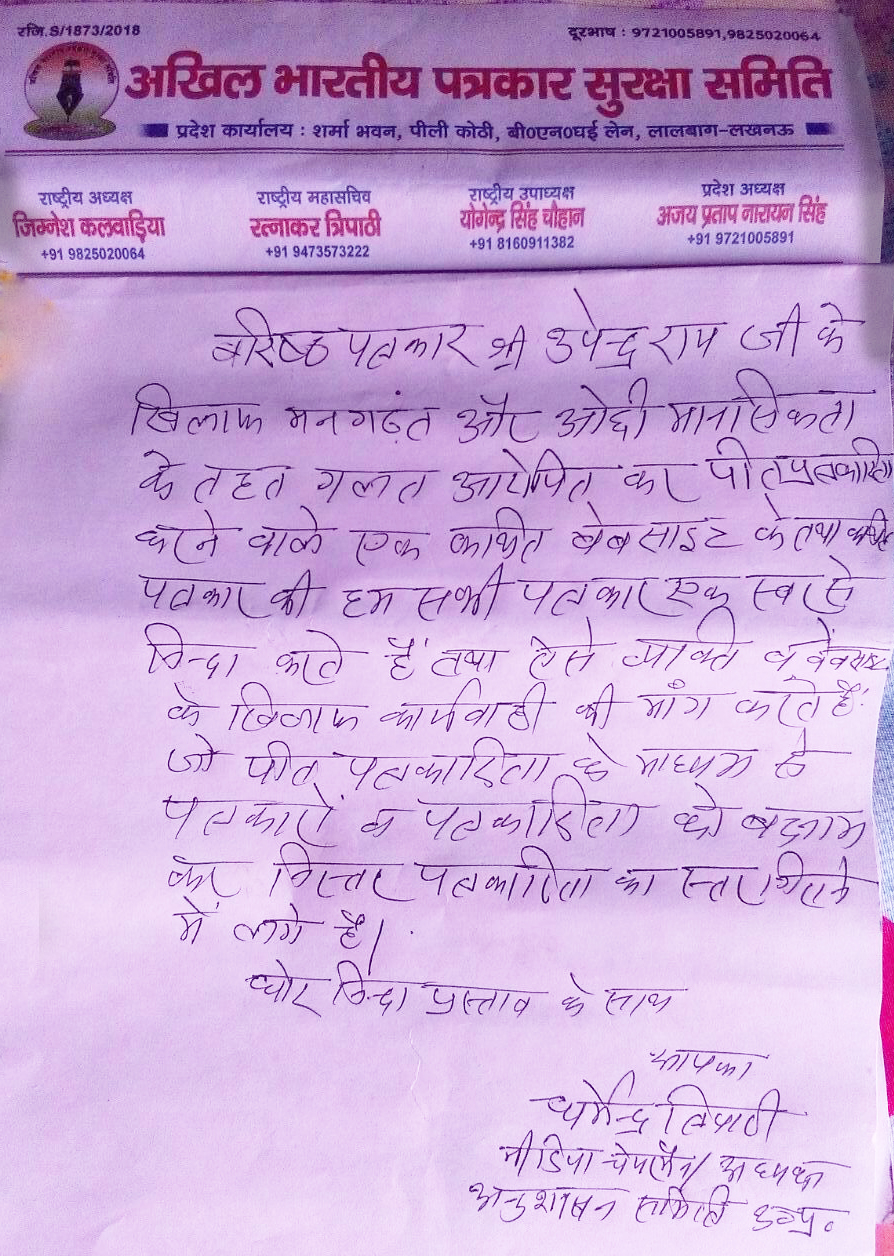 रजि.S/1873/2018
दूरभाष : 9721005891,9825020064
अखिल भारतीय पत्रकार सुरक्षा समिति
प्रदेश कार्यालय : शर्मा भवन, पीली कोठी, बी०एन०घई लेन, लालबाग-लखनऊ
राष्ट्रीय अध्यक्ष
जिग्नेश कलवाड़िया
+91 9825020064
राष्ट्रीय महासचिव
रत्नाकर त्रिपाठी
+91 9473573222
राष्ट्रीय उपाध्यक्ष
योगेन्द्र सिंह चौहान
+91 8160911382
प्रदेश अध्यक्ष
अजय प्रताप नारायण सिंह
+91 9721005891
वरिष्ठ पत्रकार श्री उपेन्द्र राय जी के
खिलाफ मनगढ़ंत और ओछी मानसिकता
के तहत गलत आरोपित कर पीत पत्रकारिता
करने वाले एक कथित बेबसाइट के तथा कथित
पत्रकार की हम सभी पत्रकार एक स्वर से
निन्दा करते हैं तथा ऐसे व्यक्ति व वेबसाइट
के खिलाफ कार्यवाही की माँग करते हैं
जो पीत पत्रकारिता के माध्यम से
पत्रकारों व पत्रकारिता को बदनाम
कर निरन्तर पत्रकारिता का स्तर गिराने
में लगे है।
घोर निन्दा प्रस्ताव के साथ
आपका
धर्मेन्द्र त्रिपाठी
मीडिया चेयरमैन/ अध्यक्ष
अनुशासन समिति उ०प्र०